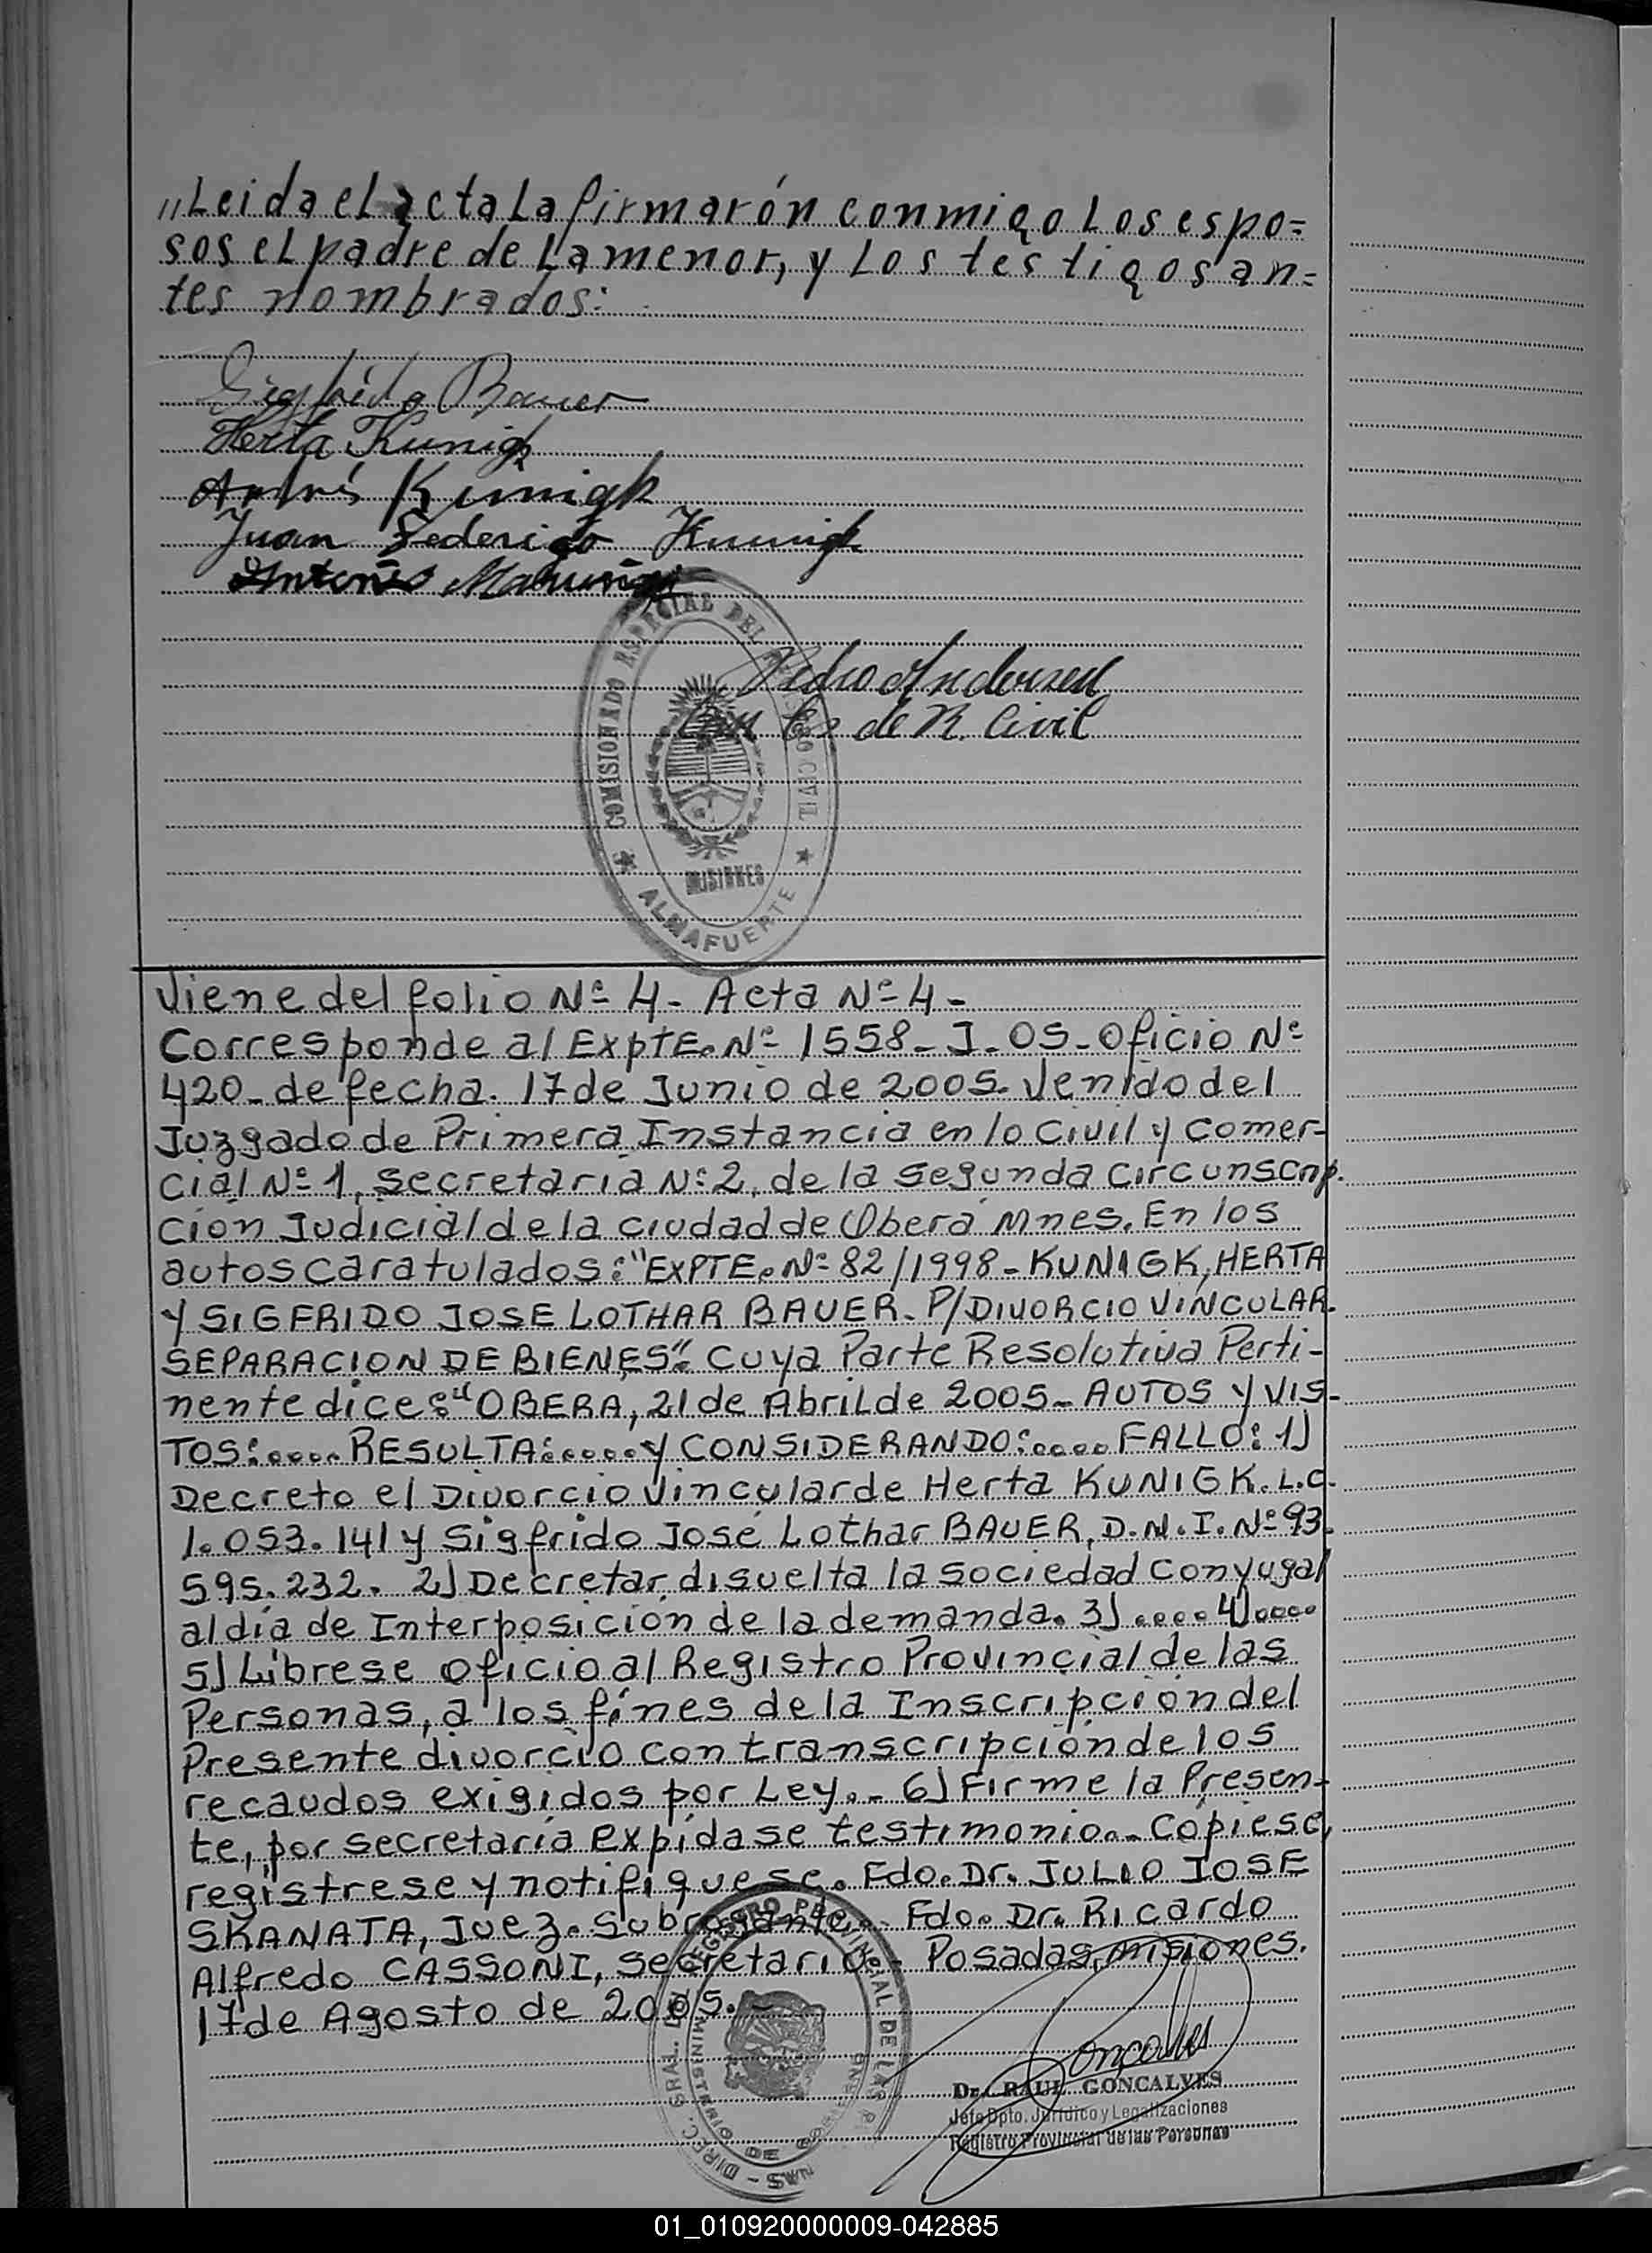 "Leida el acta La firmarón conmigo Los espo=
sos el padre de La menor, y Los testigos an=
tes nombrados:
Sigfrido Bauer
Herta Kunigk
Andrés Kunigk
Juan Federico Kunigk
Antonio
COMISIONADO ESPECIAL DEL REGISTRO CIVIL
Pedro Andersen
de R. Civil
MISIONES
★ ALMAFUERTE ★
Viene del folio Nº 4- Acta Nº 4-
Corresponde al ExptE. Nº 1558- J- 05- Oficio Nº
420- de fecha. 17 de Junio de 2005. Venido del
Juzgado de Primera Instancia en lo Civil y Comer-
cial Nº 1, Secretaria Nº 2, de la Segunda Circunscrip.
ción Judicial de la ciudad de Oberá Mnes. En los
autos caratulados: "EXPTE. Nº 82/1998- KUNIGK, HERTA
Y SIGFRIDO JOSE LOTHAR BAUER- P/DIVORCIO VINCULAR-
SEPARACION DE BIENES". Cuya Parte Resolutiva Perti-
nente dice: "OBERA, 21 de Abril de 2005- AUTOS Y VIS-
TOS:.... RESULTA:.....Y CONSIDERANDO:.... FALLO: 1)
Decreto el Divorcio Vincular de Herta KUNIGK. L.C.
1.053.141 y Sigfrido José Lothar BAUER, D.N.I. Nº 93.
595.232. 2) Decretar disuelta la sociedad Conyugal
al día de Interposición de la demanda. 3) .... 4)....
5) Líbrese oficio al Registro Provincial de las
Personas, a los fines de la Inscripción del
Presente divorcio con transcripción de los
recaudos exigidos por Ley.- 6) Firme la Presen-
te, por secretaría expídase testimonio.- Cópiese,
regístrese y notifíquese. Fdo. Dr. JULIO JOSE
SKANATA, Juez. Subrogante.- Fdo. Dr. Ricardo
Alfredo CASSONI, Secretario.- Posadas, misiones.
17 de Agosto de 2005.-
DIREC. GRAL. DEL REGISTRO PROVINCIAL DE LAS
Goncalves
Dr. RAUL GONCALVES
Jefe Dpto. Jurídico y Legalizaciones
Registro Provincial de las Personas
01_010920000009-042885